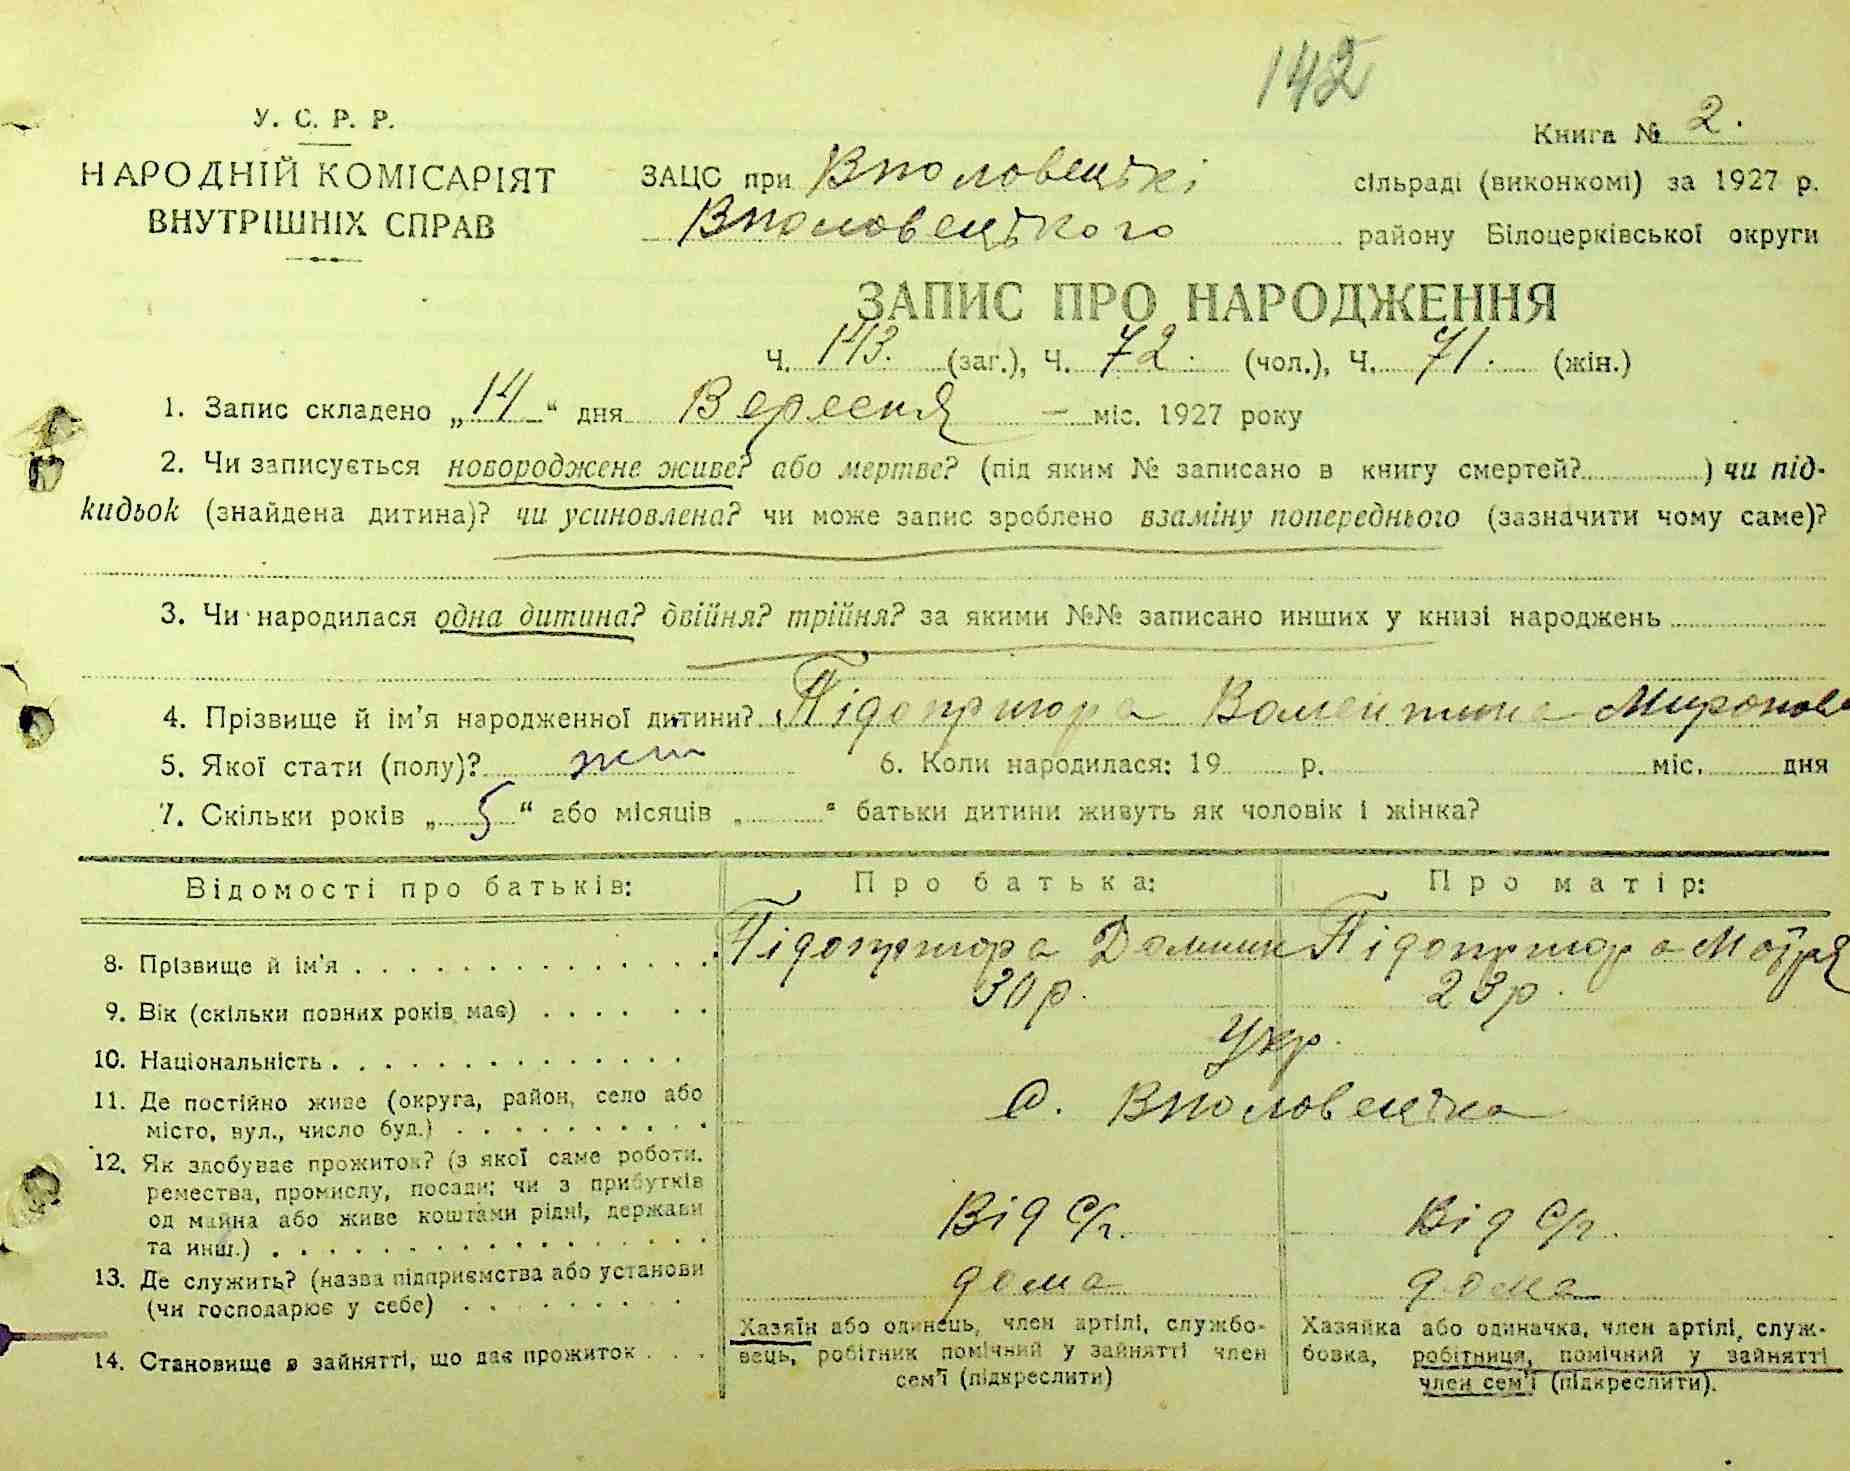 142
У. С. Р. Р.
Книга № 2.
НАРОДНІЙ КОМІСАРІЯТ
ВНУТРІШНІХ СПРАВ
ЗАЦС при Вполовецькі сільраді (виконкомі) за 1927 р.
Вполовецького району Білоцерківської округи
ЗАПИС ПРО НАРОДЖЕННЯ
Ч. 143. (заг.), Ч. 72. (чол.), Ч. 71. (жін.)
1. Запис складено „14“ дня Вересня — міс. 1927 року
2. Чи записується новороджене живе? або мертве? (під яким № записано в книгу смертей?..........) чи під-
кидьок (знайдена дитина)? чи усиновлена? чи може запис зроблено взаміну попереднього (зазначити чому саме)?
3. Чи народилася одна дитина? двійня? трійня? за якими №№ записано инших у книзі народжень
4. Прізвище й ім'я народженної дитини? Підопригора Валентина Миронов
5. Якої стати (полу)? жін 6. Коли народилася: 19 р. міс. дня
7. Скільки років „5“ або місяців „......“ батьки дитини живуть як чоловік і жінка?
Відомості про батьків: Про батька: Про матір:
8. Прізвище й ім'я Підопригора Підопригора Мотря
9. Вік (скільки повних років має) 30 р. 23 р.
10. Національність Укр.
11. Де постійно живе (округа, район, село або
місто, вул., число буд.) с. Вполовецька
12. Як здобуває прожиток? (з якої саме роботи,
ремества, промислу, посади; чи з прибутків
од майна або живе коштами рідні, держави
та инш.) Від с/г. Від с/г.
13. Де служить? (назва підприємства або установи
(чи господарює у себе) дома дома
14. Становище в зайнятті, що дає прожиток
Хазяїн або одинець, член артілі, службо-
вець, робітник помічний у зайнятті член
сем'ї (підкреслити)
Хазяйка або одиначка, член артілі, служ-
бовка, робітниця, помічний у зайнятті
член сем'ї (підкреслити).